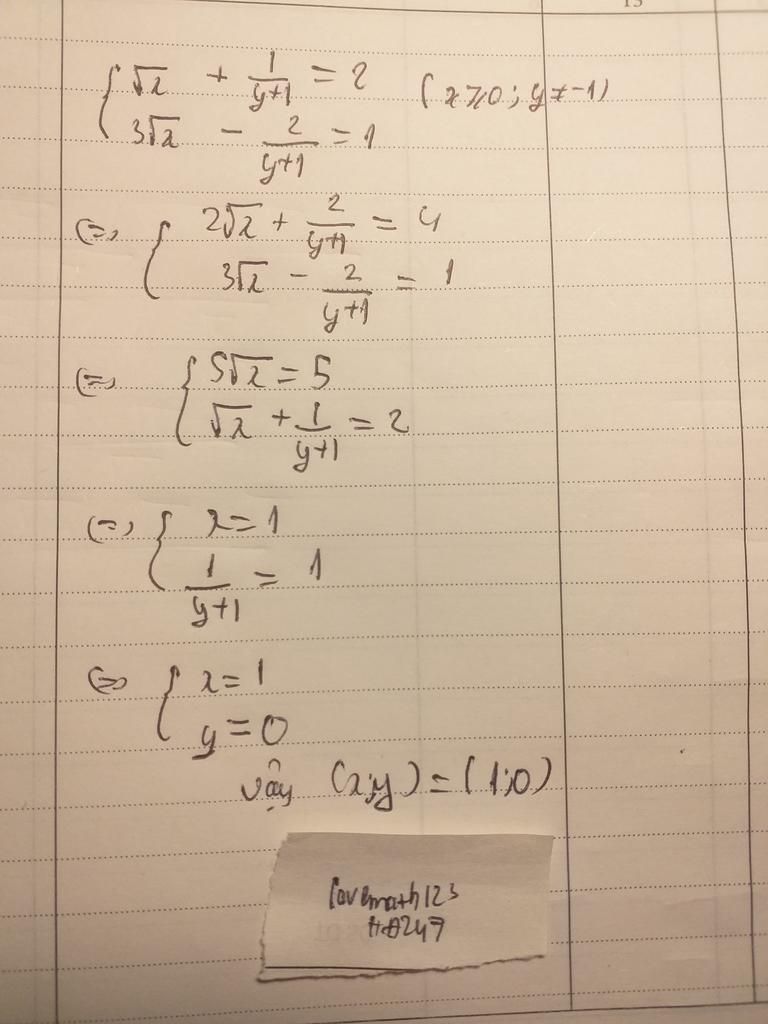 { √x + 1/(y+1) = 2 (x ≥ 0; y ≠ -1)
3√x - 2/(y+1) = 1
(=) { 2√x + 2/(y+1) = 4
3√x - 2/(y+1) = 1
(=) { 5√x = 5
√x + 1/(y+1) = 2
(=) { x = 1
1/(y+1) = 1
(=) { x = 1
y = 0
vậy (x;y) = (1;0)
lovemath123